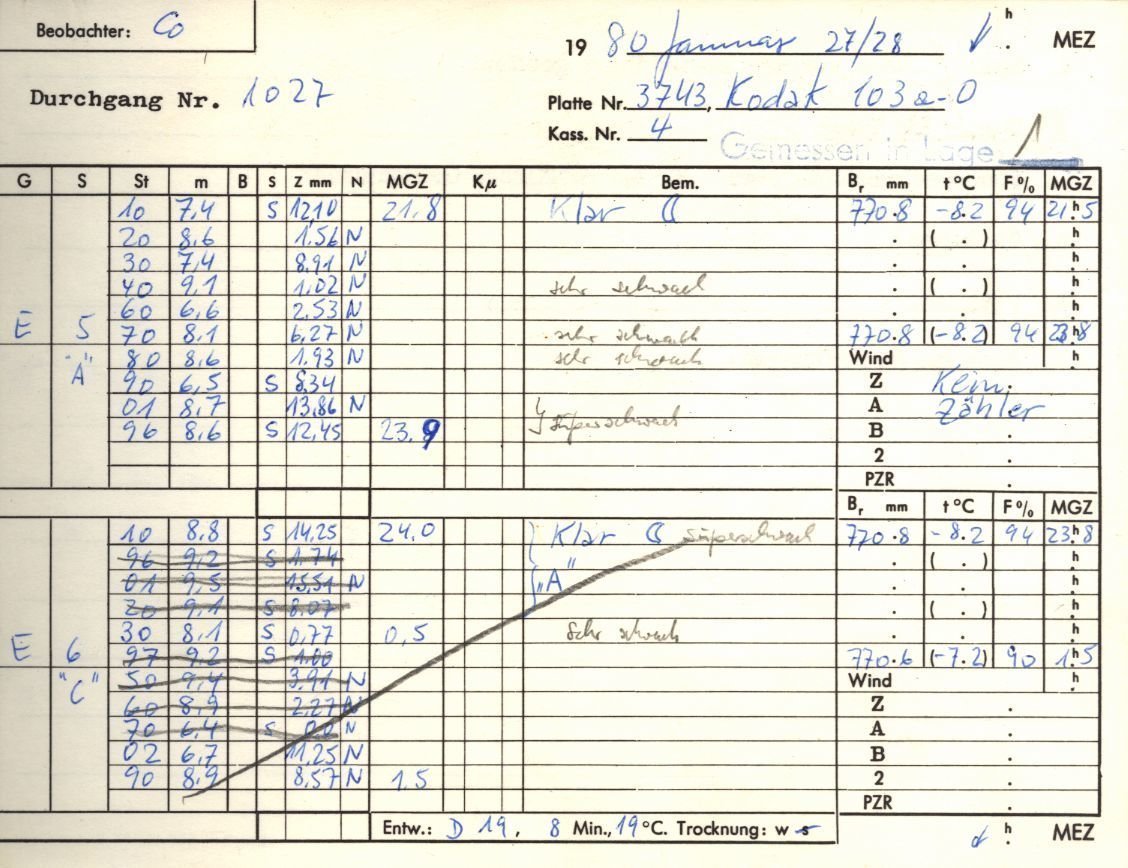 Beobachter: Co
19 80 Januar 27/28 h . MEZ
Durchgang Nr. 1027
Platte Nr. 3743, Kodak 103a-O
Kass. Nr. 4
Gemessen in Lage 1
G S St m B S Z mm N MGZ Kμ Bem. Br mm t °C F % MGZ
10 7,4 S 12,10 21,8 Klar ☾ 770.8 -8.2 94 21h.5
20 8,6 1,56 N . ( . ) h.
30 7,4 8,91 N . . h.
40 9,1 1,02 N sehr schwach . ( . ) h.
60 6,6 2,53 N . . h.
E 5 70 8,1 6,27 N sehr schwach 770.8 (-8.2) 94 23h.8
"A" 80 8,6 1,93 N sehr schwach Wind h.
90 6,5 S 8,34 Z Kein
01 8,7 13,86 N A Zähler
96 8,6 S 12,45 23.9 superschwach B .
2 .
PZR .
Br mm t °C F % MGZ
10 8,8 S 14,25 24,0 Klar ☾ superschwach 770.8 -8.2 94 23h.8
96 9,2 S 1,74 . ( . ) h.
01 9,5 15,51 N "A" . . h.
20 9,1 S 8,07 . ( . ) h.
30 8,1 S 0,77 0,5 Sehr schwach . . h.
E 6 97 9,2 S 1,00 770.6 (-7.2) 90 1h.5
"C" 50 9,4 3,91 N Wind h.
60 8,9 2,27 N Z .
70 6,4 S 0,0 N A .
02 6,7 11,25 N B .
90 8,9 8,57 N 1,5 2 .
PZR .
Entw.: D 19, 8 Min., 19 °C. Trocknung: w s h . MEZ